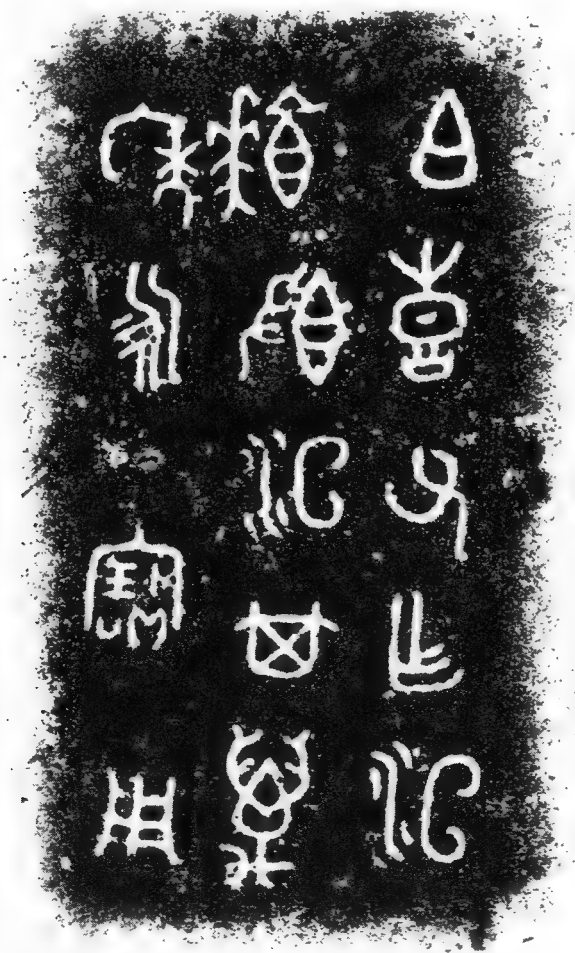 白喜父乍洹
饙𣪘洹其萬
年永寶用